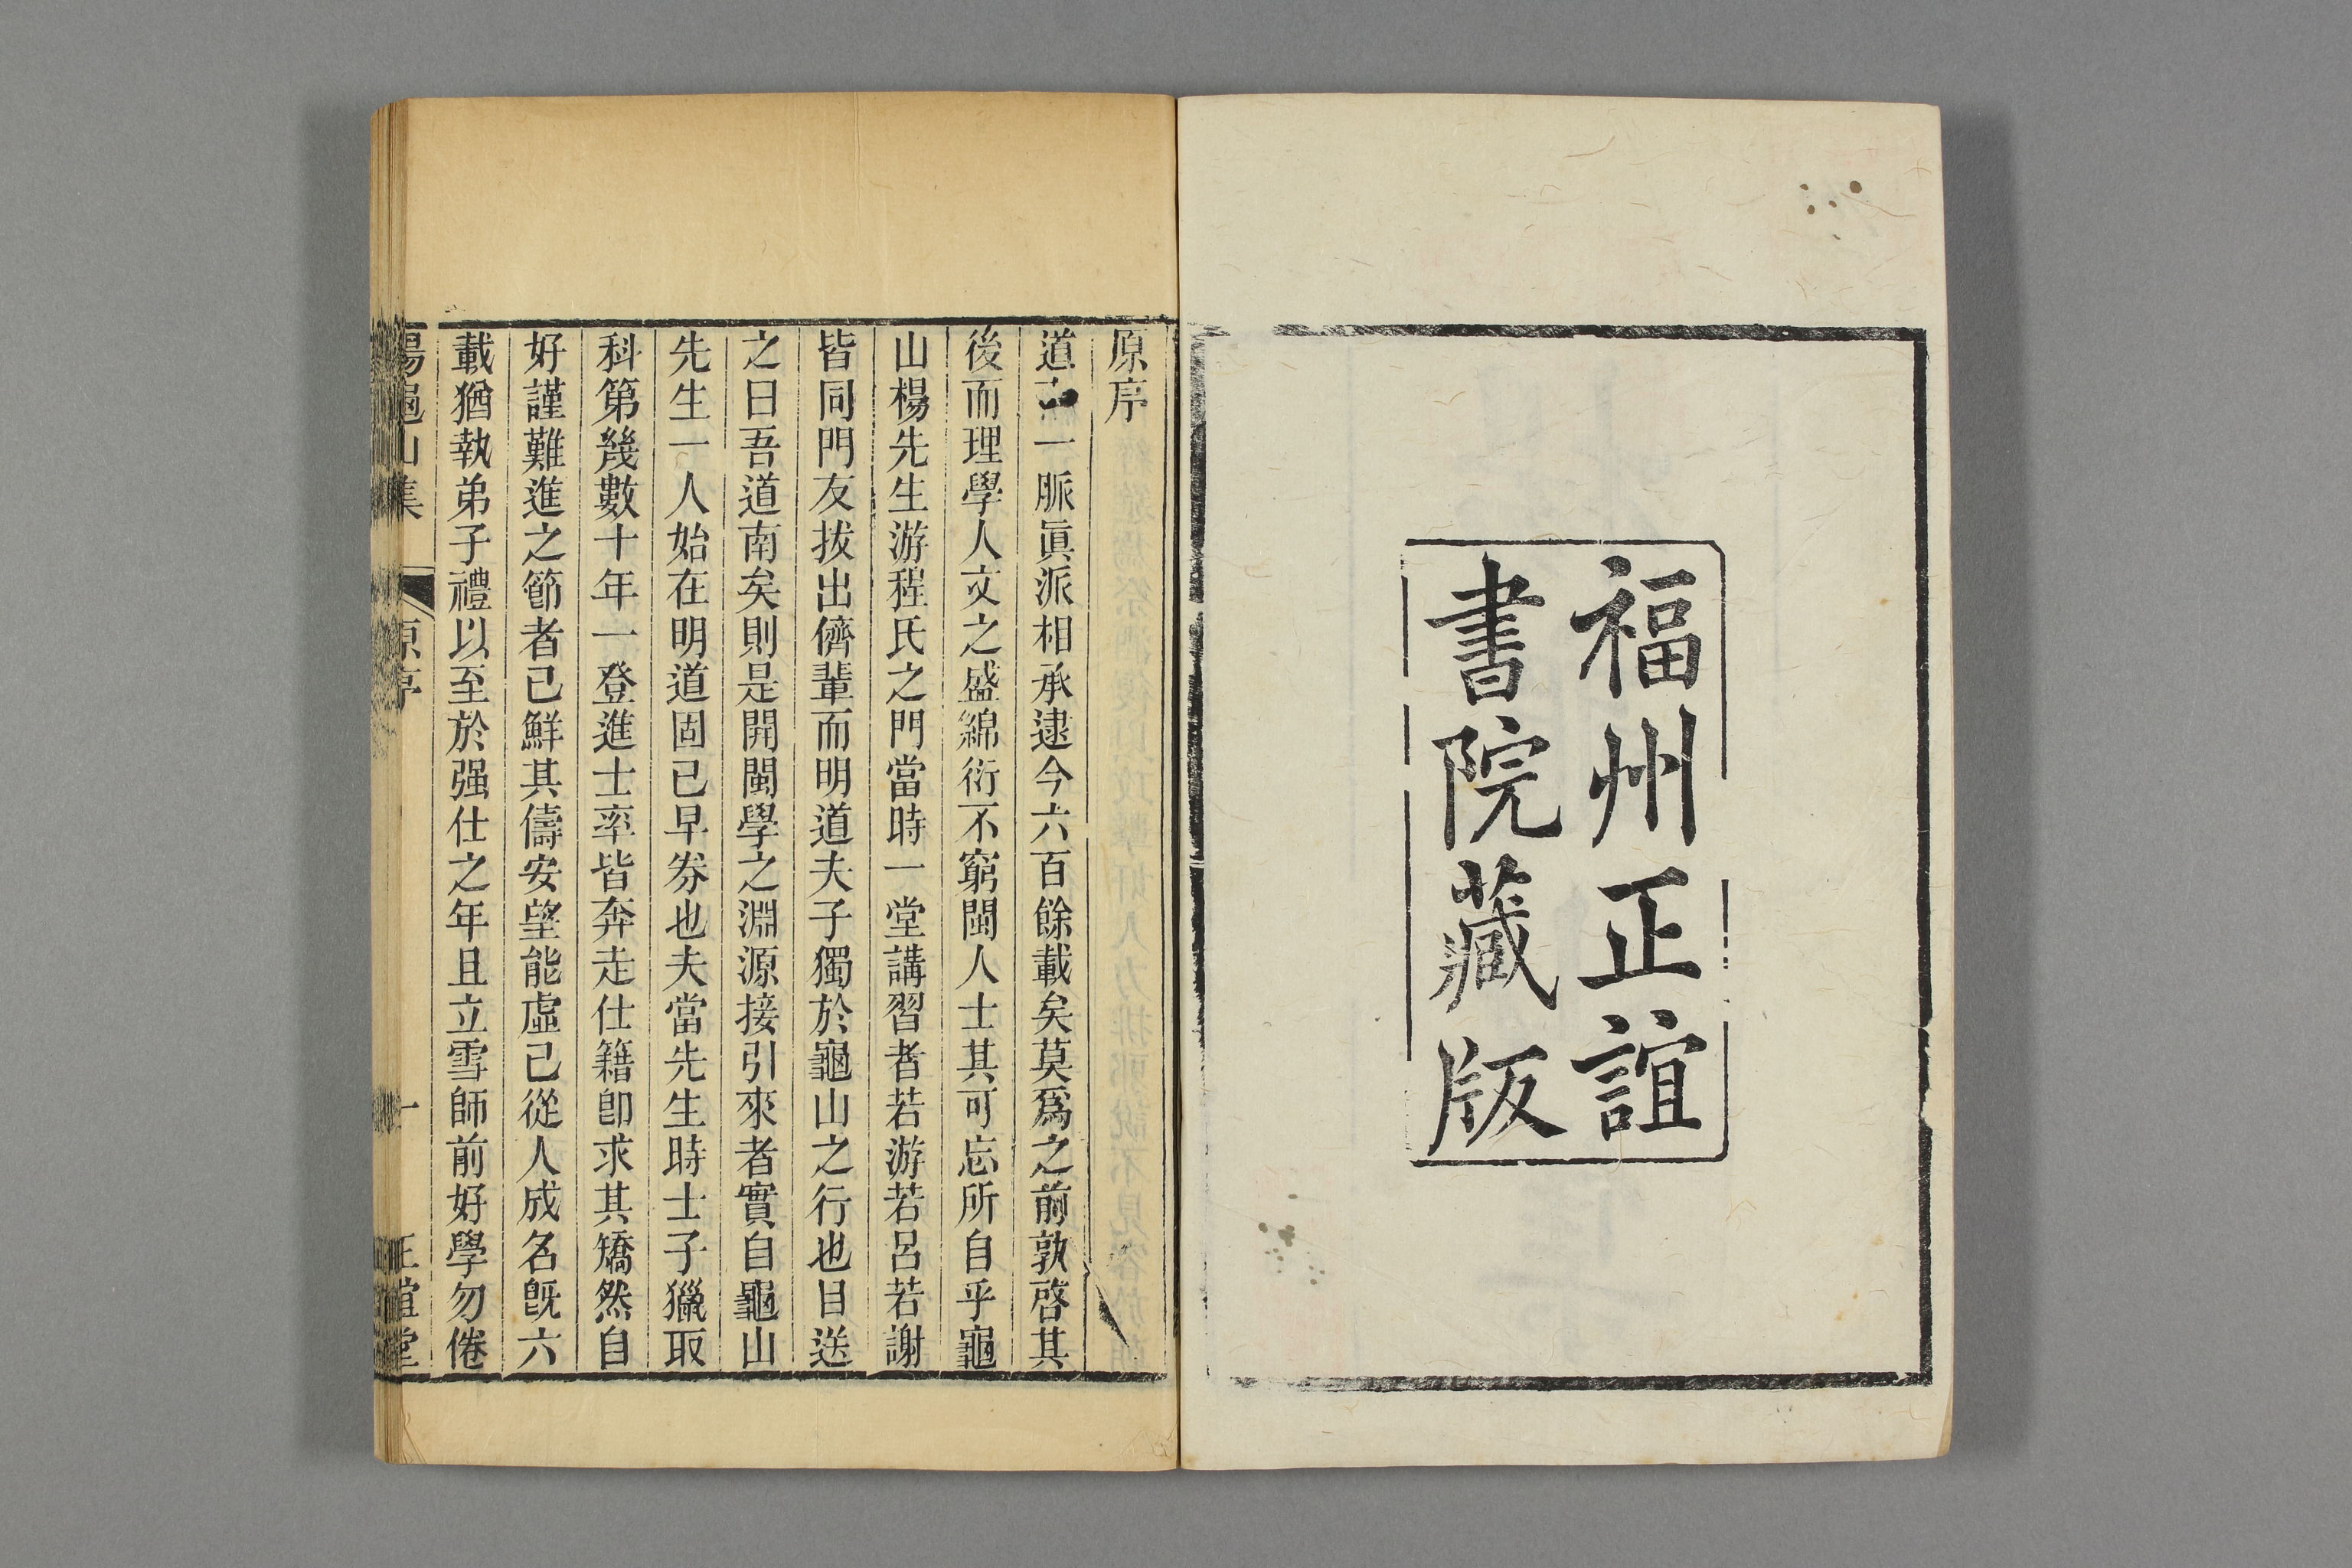 福州正誼
書院藏版
原序
道 一脈眞派相承逮今六百餘載矣莫爲之前孰啓其
後而理學人文之盛綿衍不窮閩人士其可忘所自乎龜
山楊先生游程氏之門當時一堂講習者若游若呂若謝
皆同門友拔出儕輩而明道夫子獨於龜山之行也目送
之曰吾道南矣則是開閩學之淵源接引來者實自龜山
先生一人始在明道固已早劵也夫當先生時士子獵取
科第幾數十年一登進士率皆奔走仕籍卽求其矯然自
好謹難進之節者已鮮其儔安望能虛己從人成名旣六
載猶執弟子禮以至於强仕之年且立雪師前好學勿倦
楊龜山集 原序 一 正誼堂